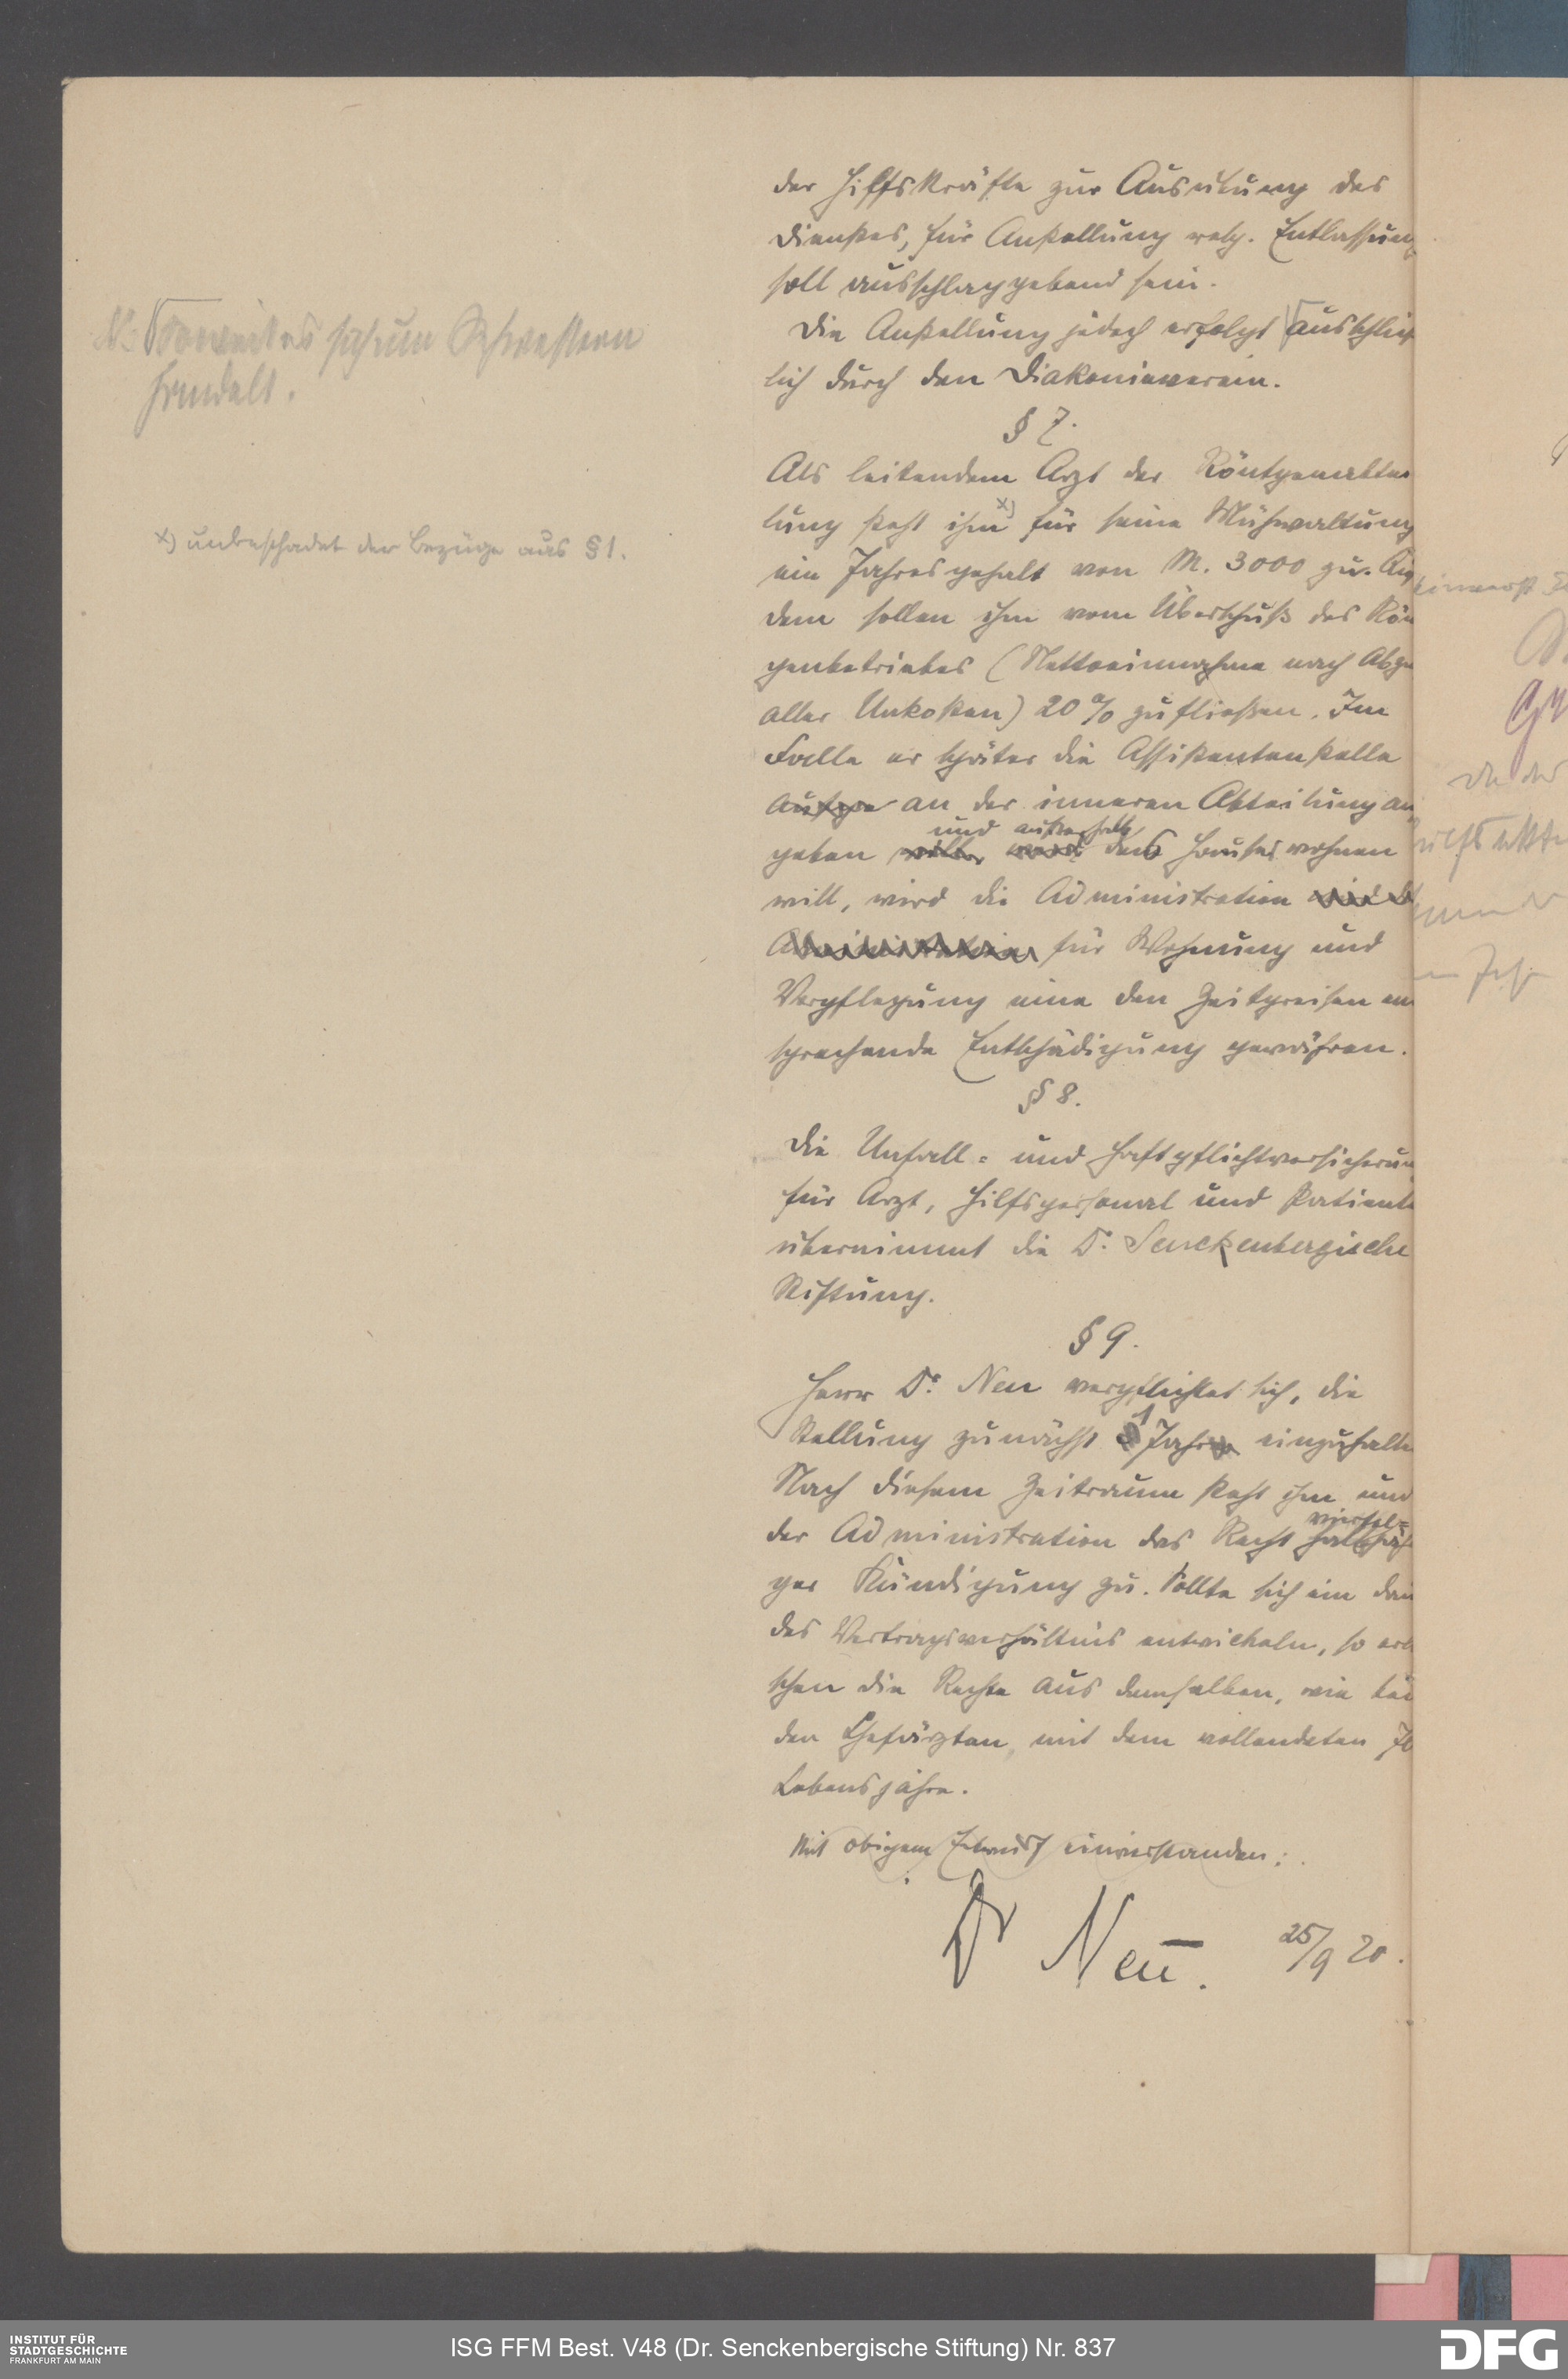 der Hilfskräfte zur Ausübung des
Dienstes, für Anstellung resp. Entlassung
soll ausschlaggebend sein.
Die Anstellung jedoch erfolgt ausschließ
lich durch den Diakonieverein.
Soweit es sich um Schwestern
handelt.
§ 7.
Als leitendem Arzt der Röntgenabtei
lung steht ihm x) für seine Mühwaltung
x) unbeschadet der Bezüge aus § 1.
ein Jahresgehalt von M. 3000 zu.
dem sollen ihm vom Überschuß des Rön
genbetriebes (Nettoeinnahme nach Abzu
aller Unkosten) 20 % zufließen. Im
Falle er später die Assistentenstelle
an der inneren Abteilung auf
geben und außerhalb des Hauses wohnen
will, wird die Administration
Administration für Wohnung und
Verpflegung eine den Zeitpreisen ent
sprechende Entschädigung gewähren.
§ 8.
Die Unfall- und Haftpflichtversicherung
für Arzt, Hilfspersonal und Patiente
übernimmt die Dr. Senckenbergische
Stiftung.
§ 9.
Herr Dr. Neu verpflichtet sich, die
Stellung zunächst 1 Jahr einzuhalte
Nach diesem Zeitraum steht ihm und
der Administration das Recht viertel- halbjäh
ger Kündigung zu. Sollte sich ein dau
des Vertragsverhältnis entwickeln, so erlö
schen die Rechte aus demselben, wie bei
den Chefärzten, mit dem vollendeten 70
Lebensjahre.
Mit obigem Entwurf einverstanden:
Dr Neu. 25/9 20.
INSTITUT FÜR
STADTGESCHICHTE
FRANKFURT AM MAIN
ISG FFM Best. V48 (Dr. Senckenbergische Stiftung) Nr. 837
DFG